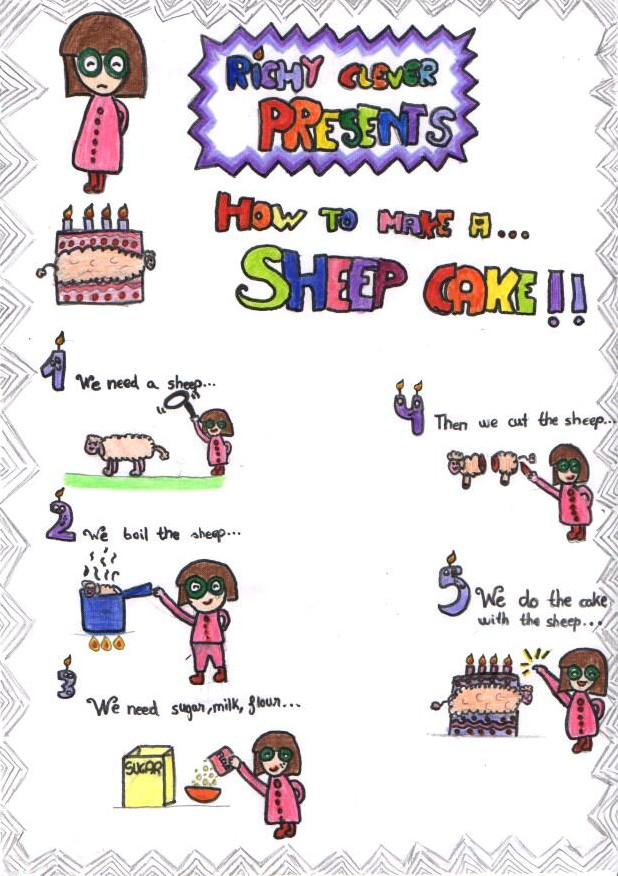 RICHY CLEVER
PRESENTS
HOW TO MAKE A...
SHEEP CAKE!!
1 We need a sheep...
2 We boil the sheep...
3 We need sugar, milk, flour...
SUGAR
4 Then we cut the sheep...
5 We do the cake
with the sheep...